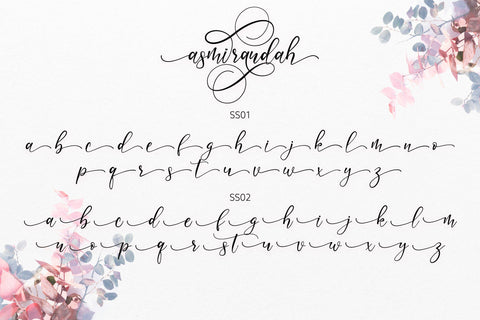 asmirandah
SS01
a b c d e f g h i j k l m n o
p q r s t u v w x y z
SS02
a b c d e f g h i j k l m
n o p q r s t u v w x y z